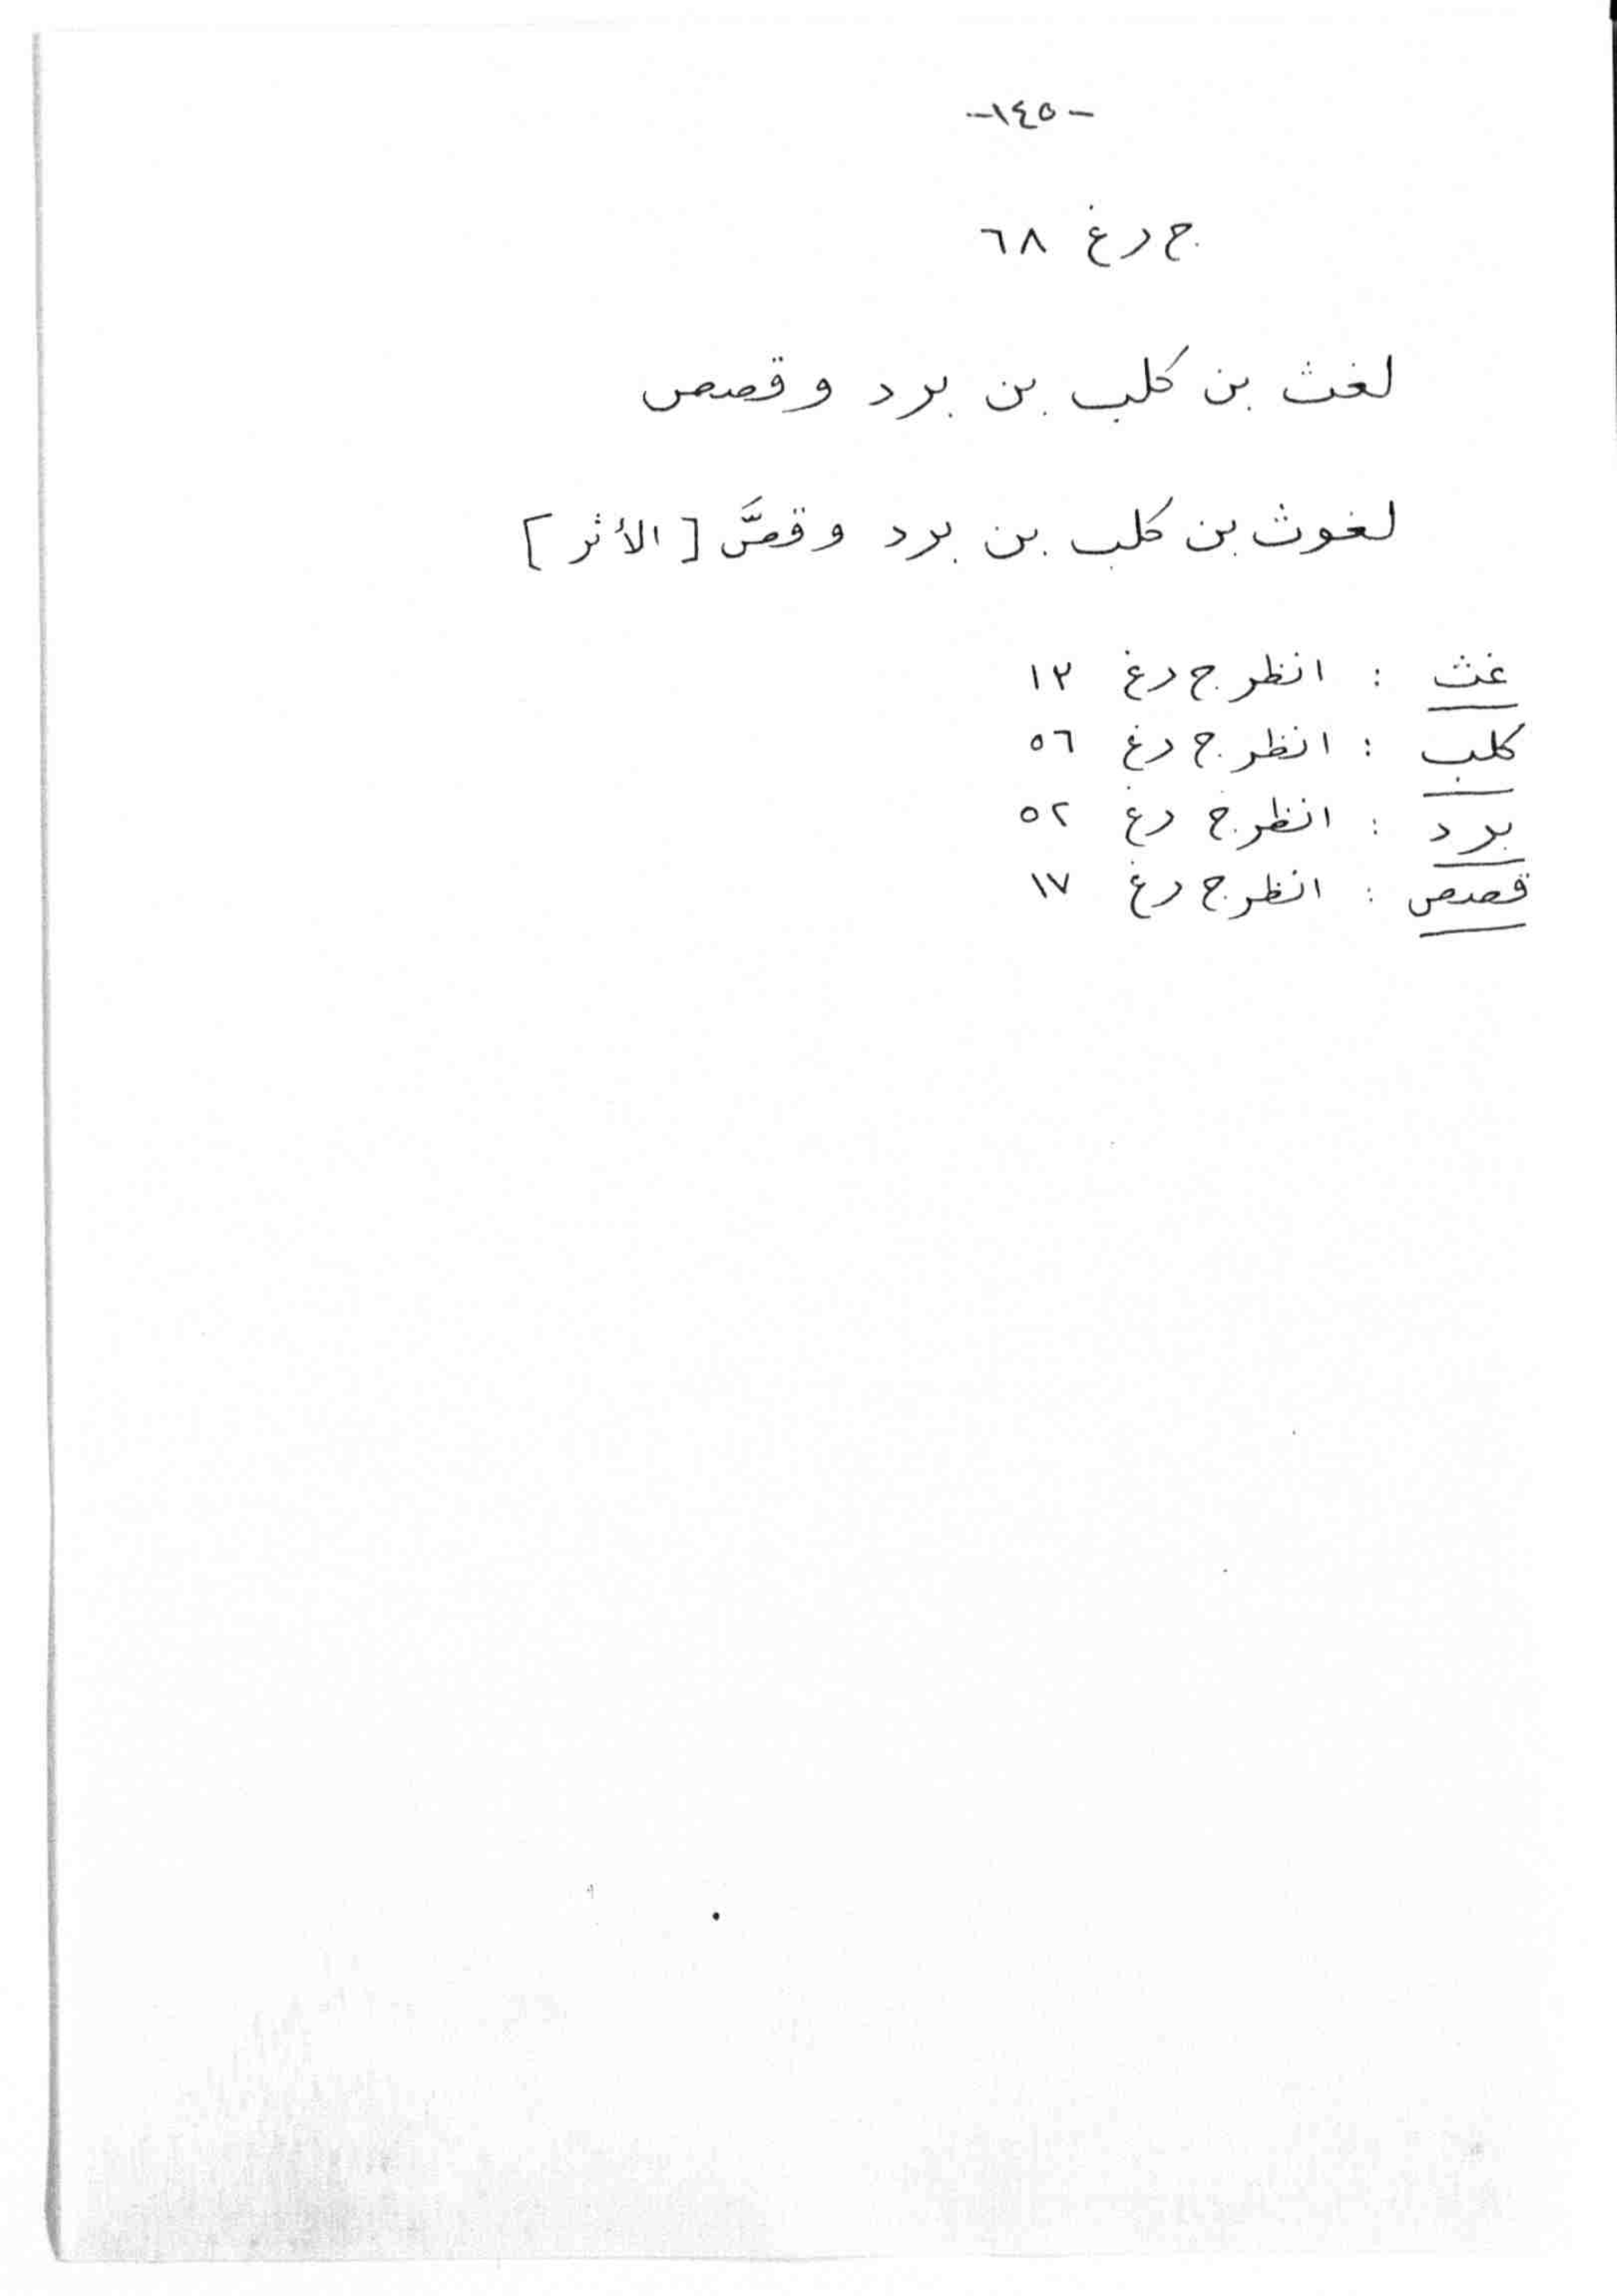 -١٤٥-
ج رغ ٦٨
لغث بن كلب بن برد و قصص
لغوث بن كلب بن برد و قصَّ [ الأثر ]
غث : انظر ج رغ ١٢
كلب : انظر ج رغ ٥٦
برد : انظر ج رغ ٥٢
قصص : انظر ج رغ ١٧